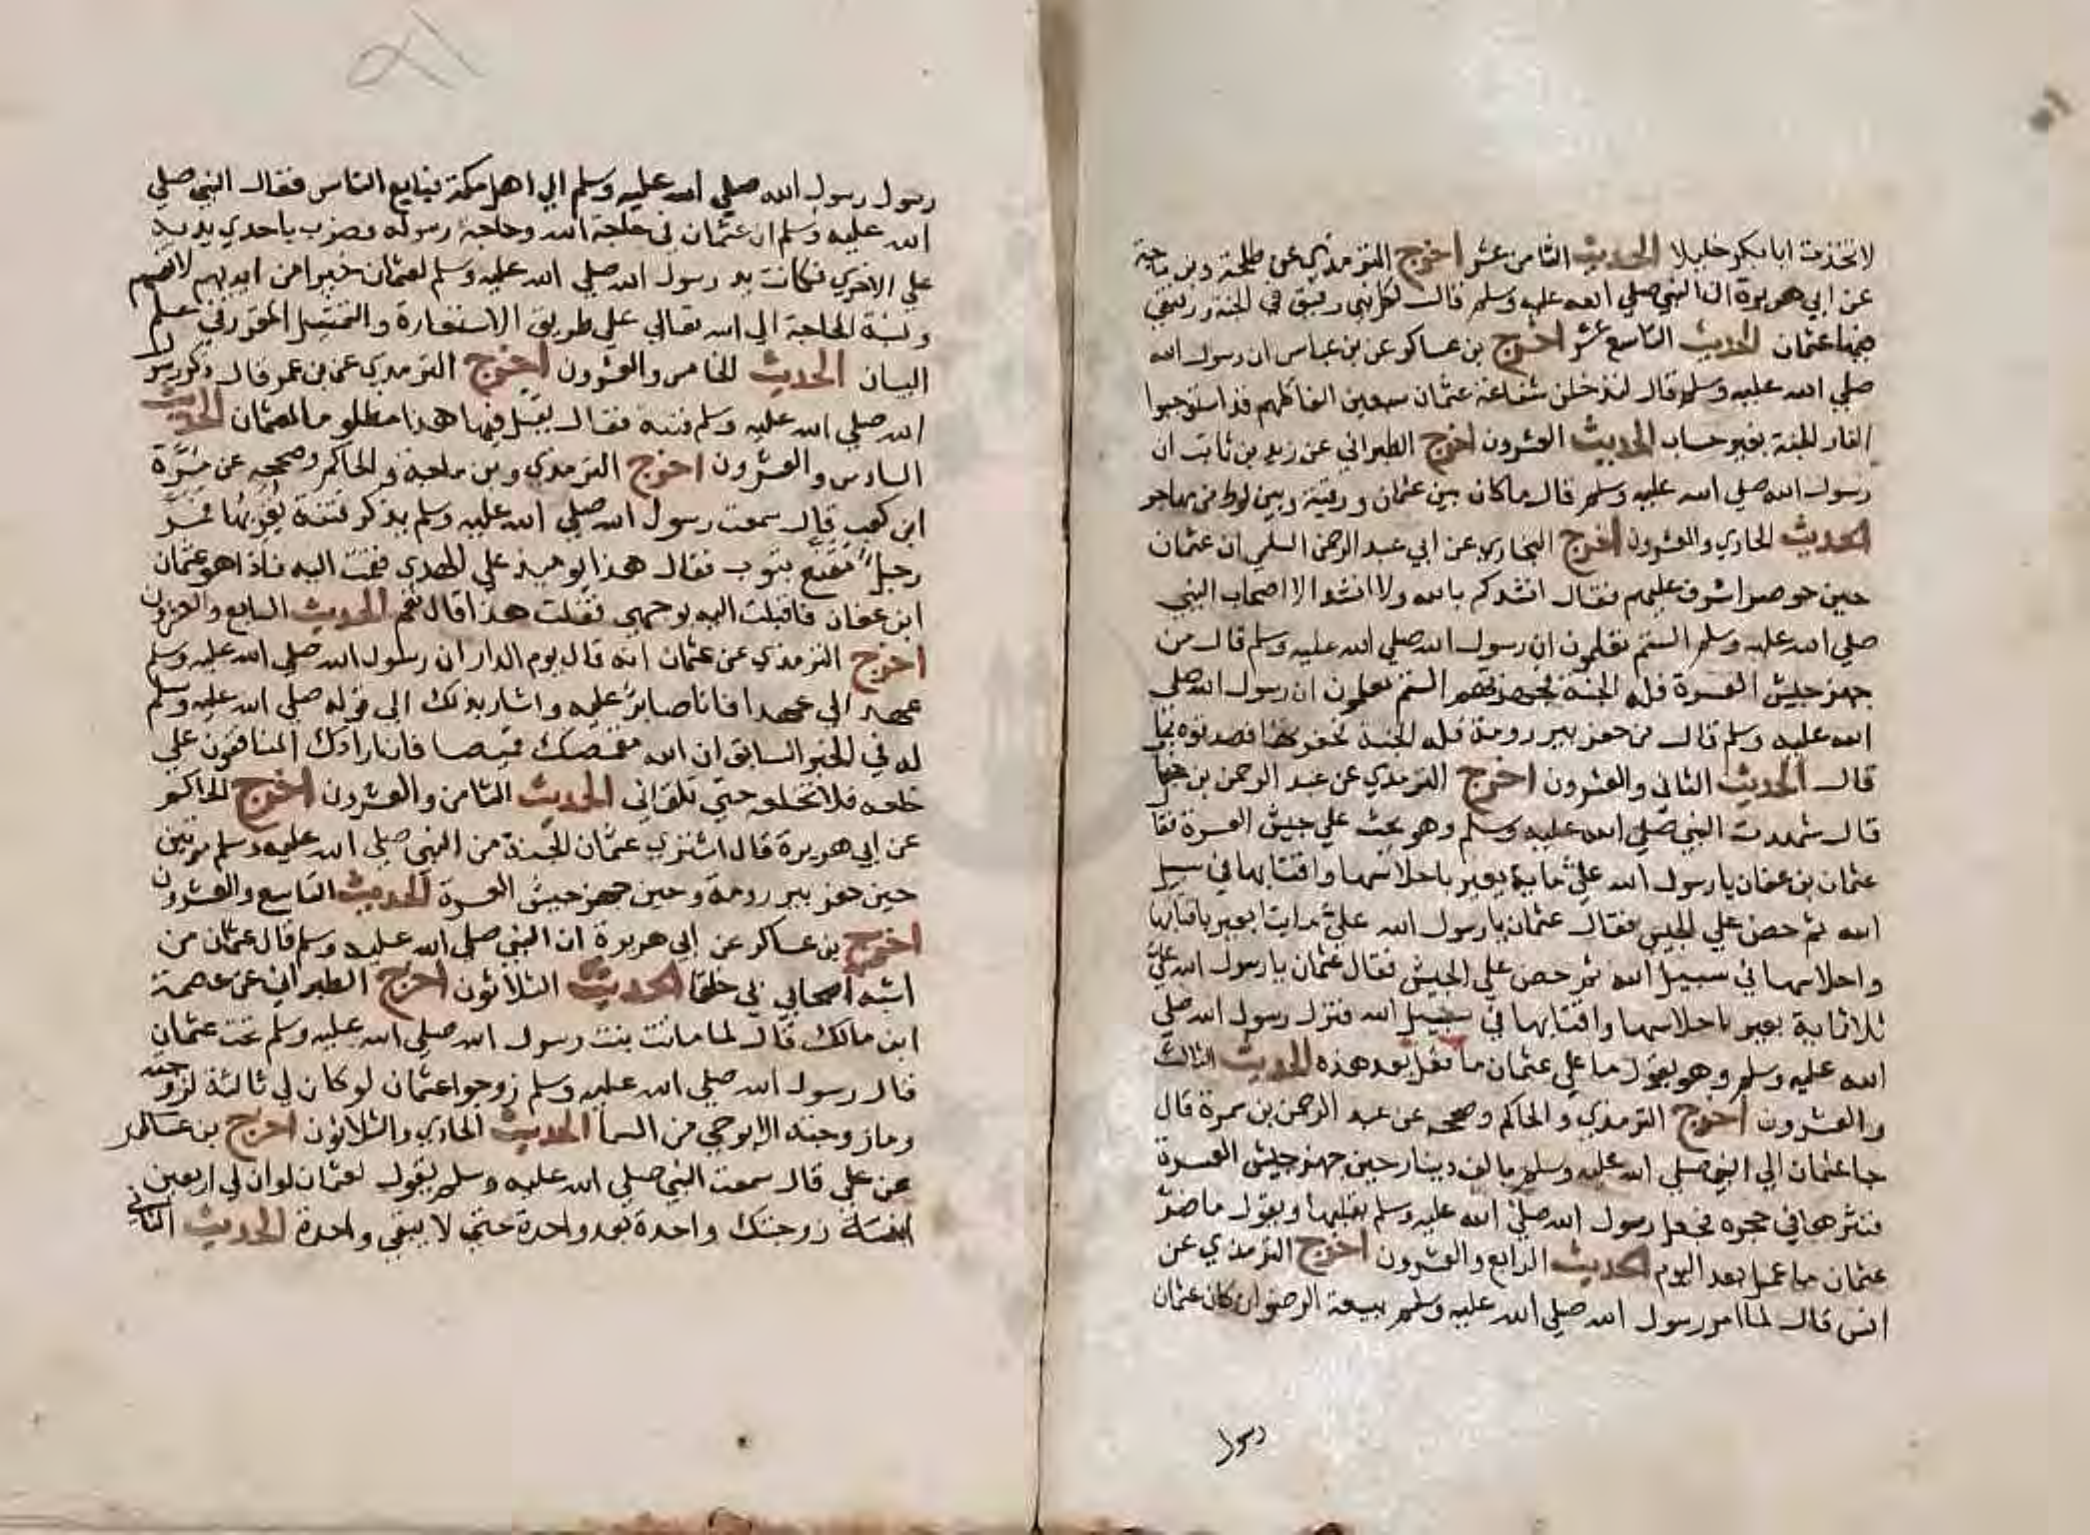 لاتخذت ابا بكر خليلا الحديث الثامن عشر اخرج الترمذي عن طلحة وبن ماجة
عن ابي هريرة ان النبي صلي الله عليه وسلم قال لكل نبي رفيق في الجنة ورفيقي
فيها عثمان الحديث التاسع عشر اخرج بن عساكر عن بن عباس ان رسول الله
صلي الله عليه وسلم قال لتدخلن شفاعة عثمان سبعين الفا كلهم قد استوجبوا
النار الجنة بغير حساب الحديث العشرون اخرج الطبراني عن زيد بن ثابت ان
رسول الله صلي الله عليه وسلم قال ما كان بين عثمان ورقية وبين لوط من مهاجر
الحديث الحادي والعشرون اخرج البخاري عن ابي عبد الرحمن السلمي ان عثمان
حين حوصر اشرف عليهم فقال انشدكم بالله ولا انشد الا اصحاب النبي
صلي الله عليه وسلم الستم تعلمون ان رسول الله صلي الله عليه وسلم قال من
جهز جيش العسرة فله الجنة فجهزتهم الستم تعلمون ان رسول الله صلي
الله عليه وسلم قال من حفر بير رومة فله الجنة فحفرتها فصدقوه بما
قال الحديث الثاني والعشرون اخرج الترمذي عن عبد الرحمن بن
قال شهدت النبي صلي الله عليه وسلم وهو يحث علي جيش العسرة فقا
عثمان بن عفان يا رسول الله علي ماية بعير باحلاسها واقتابها في سبيل
الله ثم حض علي الجيش فقال عثمان يا رسول الله علي مايتا بعير باقتابها
واحلاسها في سبيل الله ثم حض علي الجيش فقال عثمان يا رسول الله علي
ثلاثماية بعير باحلاسها واقتابها في سبيل الله فنزل رسول الله صلي
الله عليه وسلم وهو يقول ما علي عثمان ما فعل بعد هذه الحديث الثالث
والعشرون اخرج الترمذي والحاكم وصححه عن عبد الرحمن بن سمرة قال
جا عثمان الي النبي صلي الله عليه وسلم بالف دينار حين جهز جيش العسرة
فنثرها في حجره فجعل رسول الله صلي الله عليه وسلم يقلبها ويقول ما ضر
عثمان ما عمل بعد اليوم الحديث الرابع والعشرون اخرج الترمذي عن
انس قال لما امر رسول الله صلي الله عليه وسلم ببيعة الرضوان كان عثمان
رسول
رسول رسول الله صلي الله عليه وسلم الي اهل مكة فبايع الناس فقال النبي صلي
الله عليه وسلم ان عثمان في حاجة الله وحاجة رسوله فضرب باحدي يديه
علي الاخري فكانت يد رسول الله صلي الله عليه وسلم لعثمان خيرا من ايديهم لانفسهم
ونسبة الحاجة الي الله تعالي علي طريق الاستعارة والتمثيل المقرر في علم
البيان الحديث الخامس والعشرون اخرج الترمذي عن بن عمر قال ذكر رسول
الله صلي الله عليه وسلم فتنة فقال يقتل فيها هذا مظلوما لعثمان الحديث
السادس والعشرون اخرج الترمذي وبن ماجة والحاكم وصححه عن مرة
ابن كعب قال سمعت رسول الله صلي الله عليه وسلم يذكر فتنة يقربها فمر
رجل مقنع بثوب فقال هذا يوميذ علي الهدي فقمت اليه فاذا هو عثمان
ابن عفان فاقبلت اليه بوجهي فقلت هذا قال نعم الحديث السابع والعشرون
اخرج الترمذي عن عثمان انه قال يوم الدار ان رسول الله صلي الله عليه وسلم
عهد الي عهدا فانا صابر عليه واشار بذلك الي قوله صلي الله عليه وسلم
له في الخبر السابق ان الله مقمصك قميصا فان ارادك المنافقون علي
خلعه فلا تخلعه حتي تلقاني الحديث الثامن والعشرون اخرج الحاكم
عن ابي هريرة قال اشتري عثمان الجنة من النبي صلي الله عليه وسلم مرتين
حين حفر بير رومة وحين جهز جيش العسرة الحديث التاسع والعشرون
اخرج بن عساكر عن ابي هريرة ان النبي صلي الله عليه وسلم قال عثمان من
اشبه اصحابي بي خلقا الحديث الثلاثون اخرج الطبراني عن عصمة
ابن مالك قال لما ماتت بنت رسول الله صلي الله عليه وسلم تحت عثمان
قال رسول الله صلي الله عليه وسلم زوجوا عثمان لو كان لي ثالثة لزوجته
وما زوجته الا بوحي من السما الحديث الحادي والثلاثون اخرج بن عساكر
عن علي قال سمعت النبي صلي الله عليه وسلم يقول لعثمان لو ان لي اربعين
ابنة زوجتك واحدة بعد واحدة حتي لا يبقي واحدة الحديث الثاني